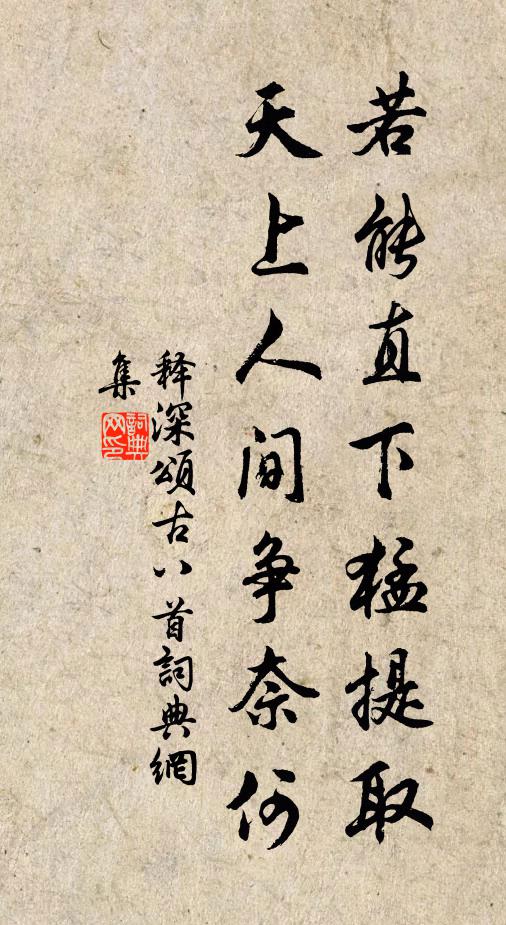 若能直下猛提取
天上人间争奈何
释深颂古八首词典網
集
詞典
网印